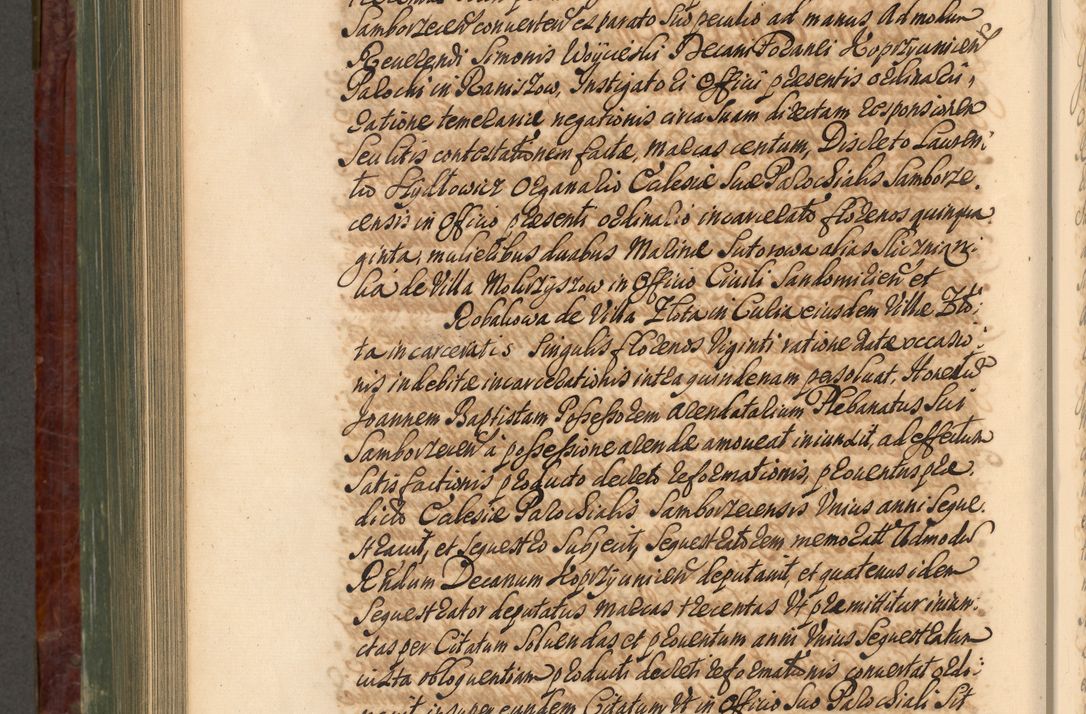 Samborzecen convertend ex parato suo peculio ad manus Admodum
Reverendi Simonis Woycieski Decani Foranei Koprzyvnicen
Parochi in Raniszow, Instigatori Officii præsentis ordinarii,
ratione temerariæ negationis circa suam directam responsionem
seu litis contestationem factæ, marcas centum, Discreto Lauren:
tio Szydłowicz Organario Ecclesiæ Suæ Parochialis Samborze.
censis in Officio præsenti ordinario incarcerato florenos quinqua
ginta, mulieribus duabus Marinæ Sutorowa alias
de Villa Mokrzyszow in Officio Civili Sandomirien et
Robakowa de Villa Złota in Curia eiusdem Villæ Zło:
ta incarceratis singulis florenos Viginti ratione datæ occasio:
nis indebitæ incarcerationis intra quindenam persolvat,
Joannem Baptistam Possessorem arendatarium Plebanatus Sui
Samborzecen à possessione arendæ amoveat iniunxit, ad effectum
satisfactionis producto decreto reformationis, proventus præ
dictæ Ecclesiæ Parochialis Samborzecensis Unius anni seque.
stravit, et sequestro subjecit, sequestratorem memoratt Admodu
Rndum Decanum Koprzyvnicen deputavit, et quatenus idem
sequestrator deputatus marcas trecentas Ut præmittitur iniun:
ctas per Citatum solvendas et proventum anni Unius sequestratum
iuxta obloquentiam producti decreti reformationis convertat ordi:
navit insuper eundem Citatum Ut in Officio suo Parochiali sit